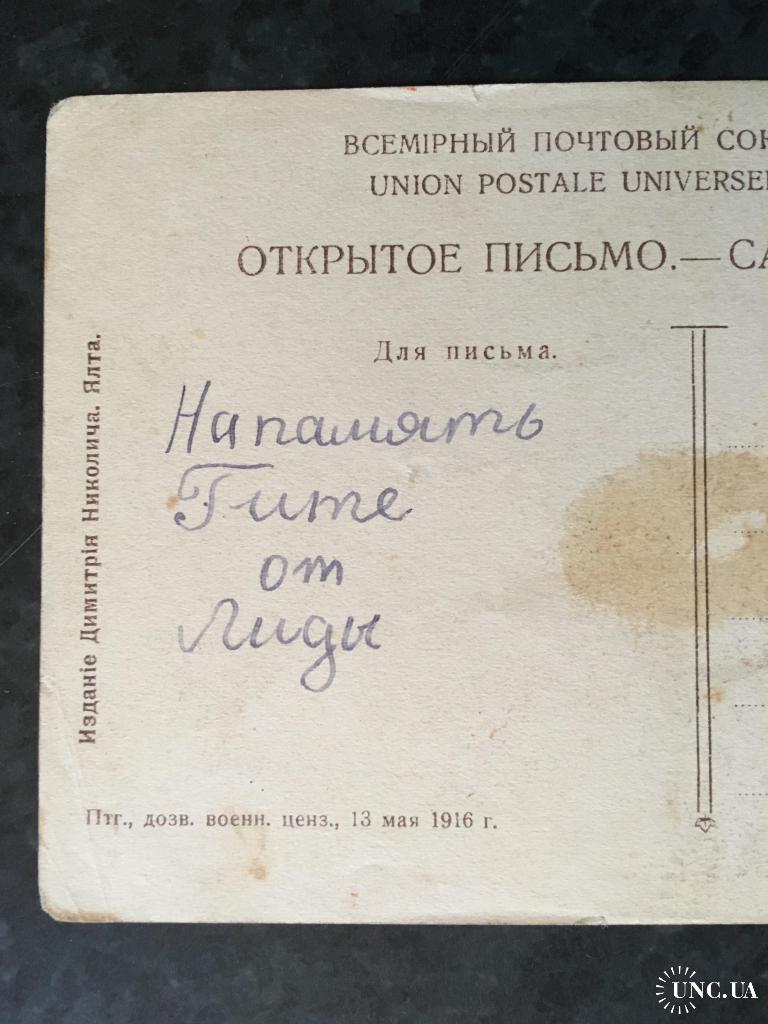 ВСЕМІРНЫЙ ПОЧТОВЫЙ СОЮ
UNION POSTALE UNIVERSEL
ОТКРЫТОЕ ПИСЬМО.—CA
Для письма.
На память
Гите
от
Лиды
Изданіе Димитрія Николича. Ялта.
Птг., дозв. военн. ценз., 13 мая 1916 г.
UNC.UA